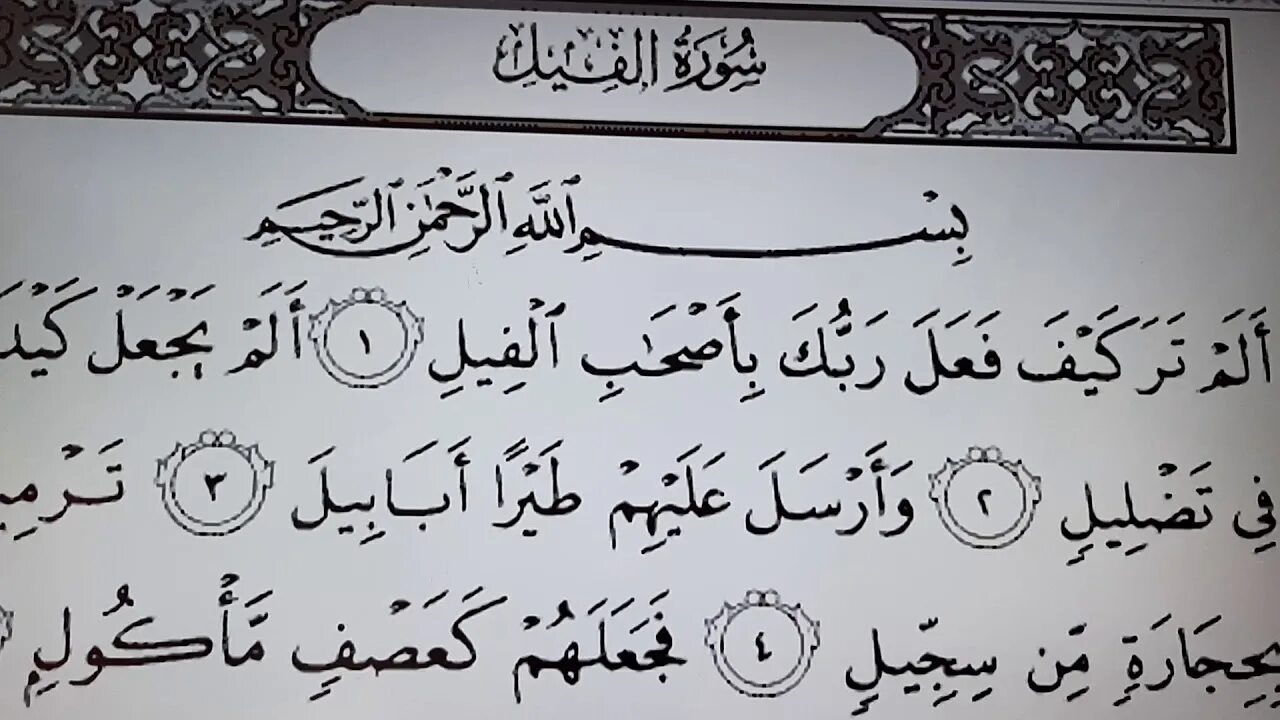 سُورَةُ الفِيلِ
بِسْمِ ٱللَّهِ ٱلرَّحْمَٰنِ ٱلرَّحِيمِ
أَلَمْ تَرَ كَيْفَ فَعَلَ رَبُّكَ بِأَصْحَٰبِ ٱلْفِيلِ ١ أَلَمْ يَجْعَلْ
فِي تَضْلِيلٍ ٢ وَأَرْسَلَ عَلَيْهِمْ طَيْرًا أَبَابِيلَ ٣
بِحِجَارَةٍ مِّن سِجِّيلٍ ٤ فَجَعَلَهُمْ كَعَصْفٍ مَّأْكُولٍ